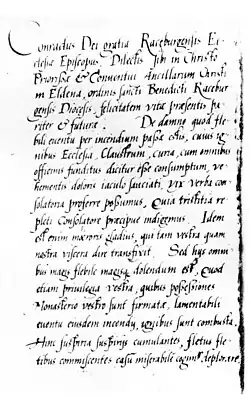 Conradus Dei gratia Raceburgensis Ec
clesia Episcopus. Dilectis sibi in Christo
Priorissæ & Conventui Ancillarum Christi
in Eldena, ordinis sancti Benedicti Racebur
gensis Diocesis, felicitatem vitæ præsentis pa
riter & futuræ. De damno quod fle
bili eventu per incendium passæ estis, cuius ig
nibus Ecclesia, Claustrum, curia, cum omnibus
officinis funditus dicitur esse consumptum, ve
hementis doloris iaculo sauciati, vix verba con
solatoria proferre possumus, Quia tristitia re
pleti Consolatore præcipue indigemus. Idem
est enim mœroris gladius, qui tam vestra quam
nostra viscera dire transfixit. Sed hijs omni
bus magis flebile magisq dolendum est, Quod
etiam privilegia vestra, quibus possessiones
Monasterio vestro sunt firmatæ, lamentabili
eventu eiusdem incendij, ignibus sunt combusta.
Hinc suspiria suspirijs cumulantes, fletus fle
tibus commiscentes casum miserabilē deplorare,